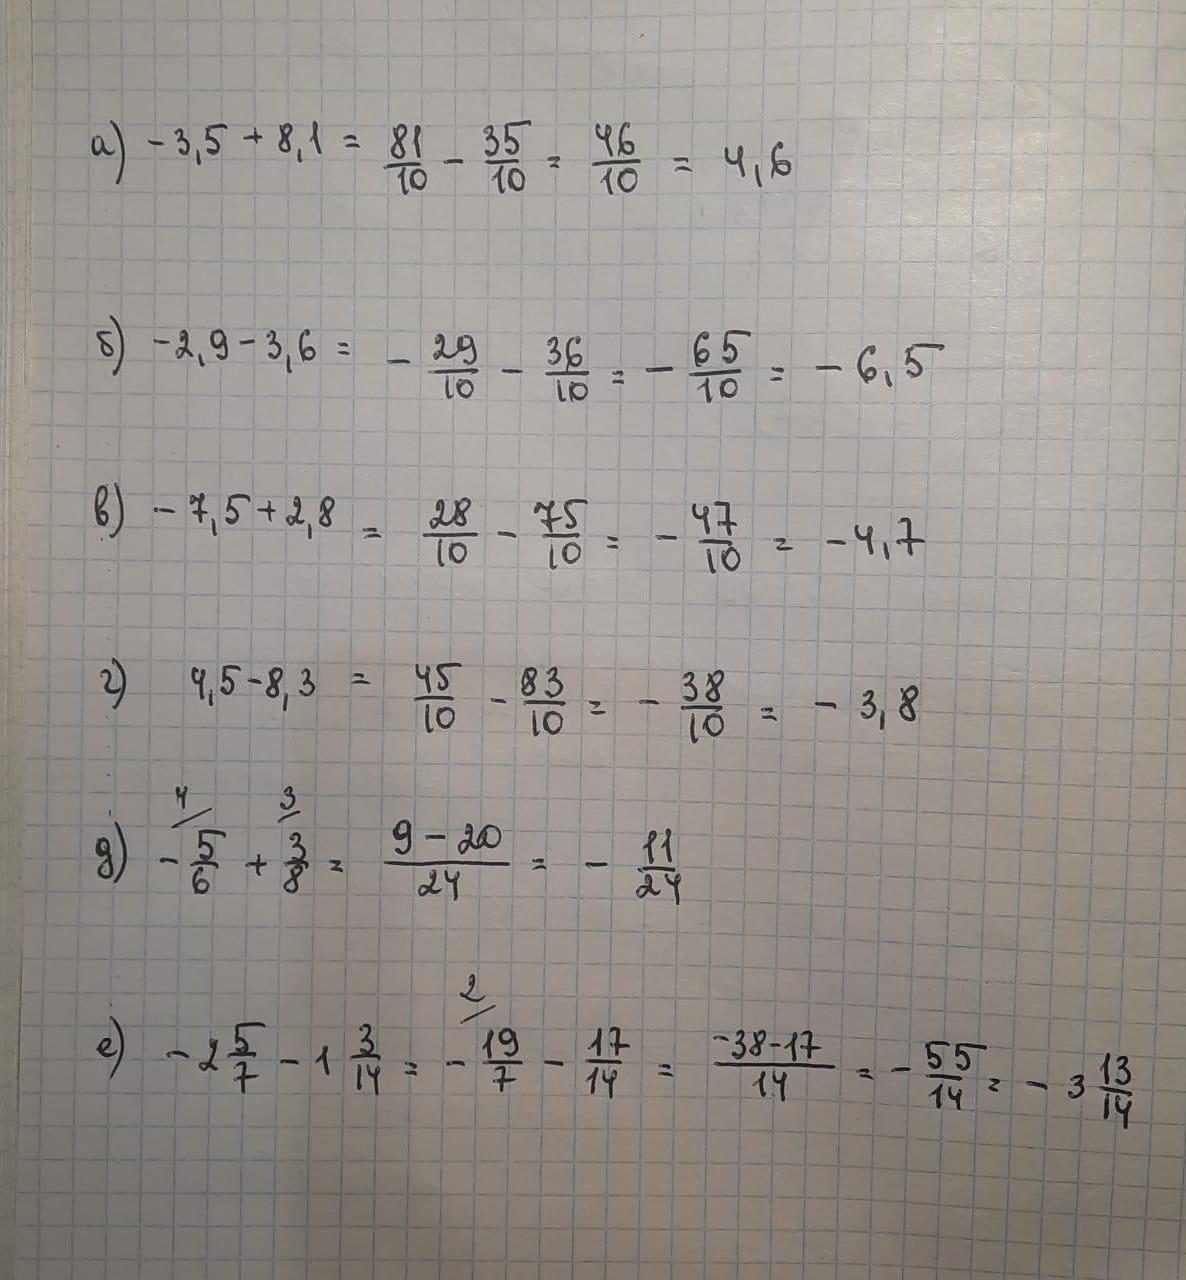 а) -3,5 + 8,1 = 81/10 - 35/10 = 46/10 = 4,6
б) -2,9 - 3,6 = - 29/10 - 36/10 = - 65/10 = - 6,5
в) - 7,5 + 2,8 = 28/10 - 75/10 = - 47/10 = - 4,7
г) 4,5 - 8,3 = 45/10 - 83/10 = - 38/10 = - 3,8
4 3
д) - 5/6 + 3/8 = 9 - 20/24 = - 11/24
2
е) - 2 5/7 - 1 3/14 = - 19/7 - 17/14 = -38-17/14 = - 55/14 = - 3 13/14